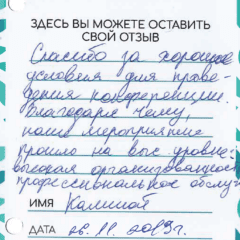 ЗДЕСЬ ВЫ МОЖЕТЕ ОСТАВИТЬ
СВОЙ ОТЗЫВ
Спасибо за хорошие
условия для прове-
дения конференции.
Благодаря чему,
наше мероприятие
прошло на выс. уровне.
высокая организованность
профессиональное обслу
ИМЯ
ДАТА 26.11.2019г.